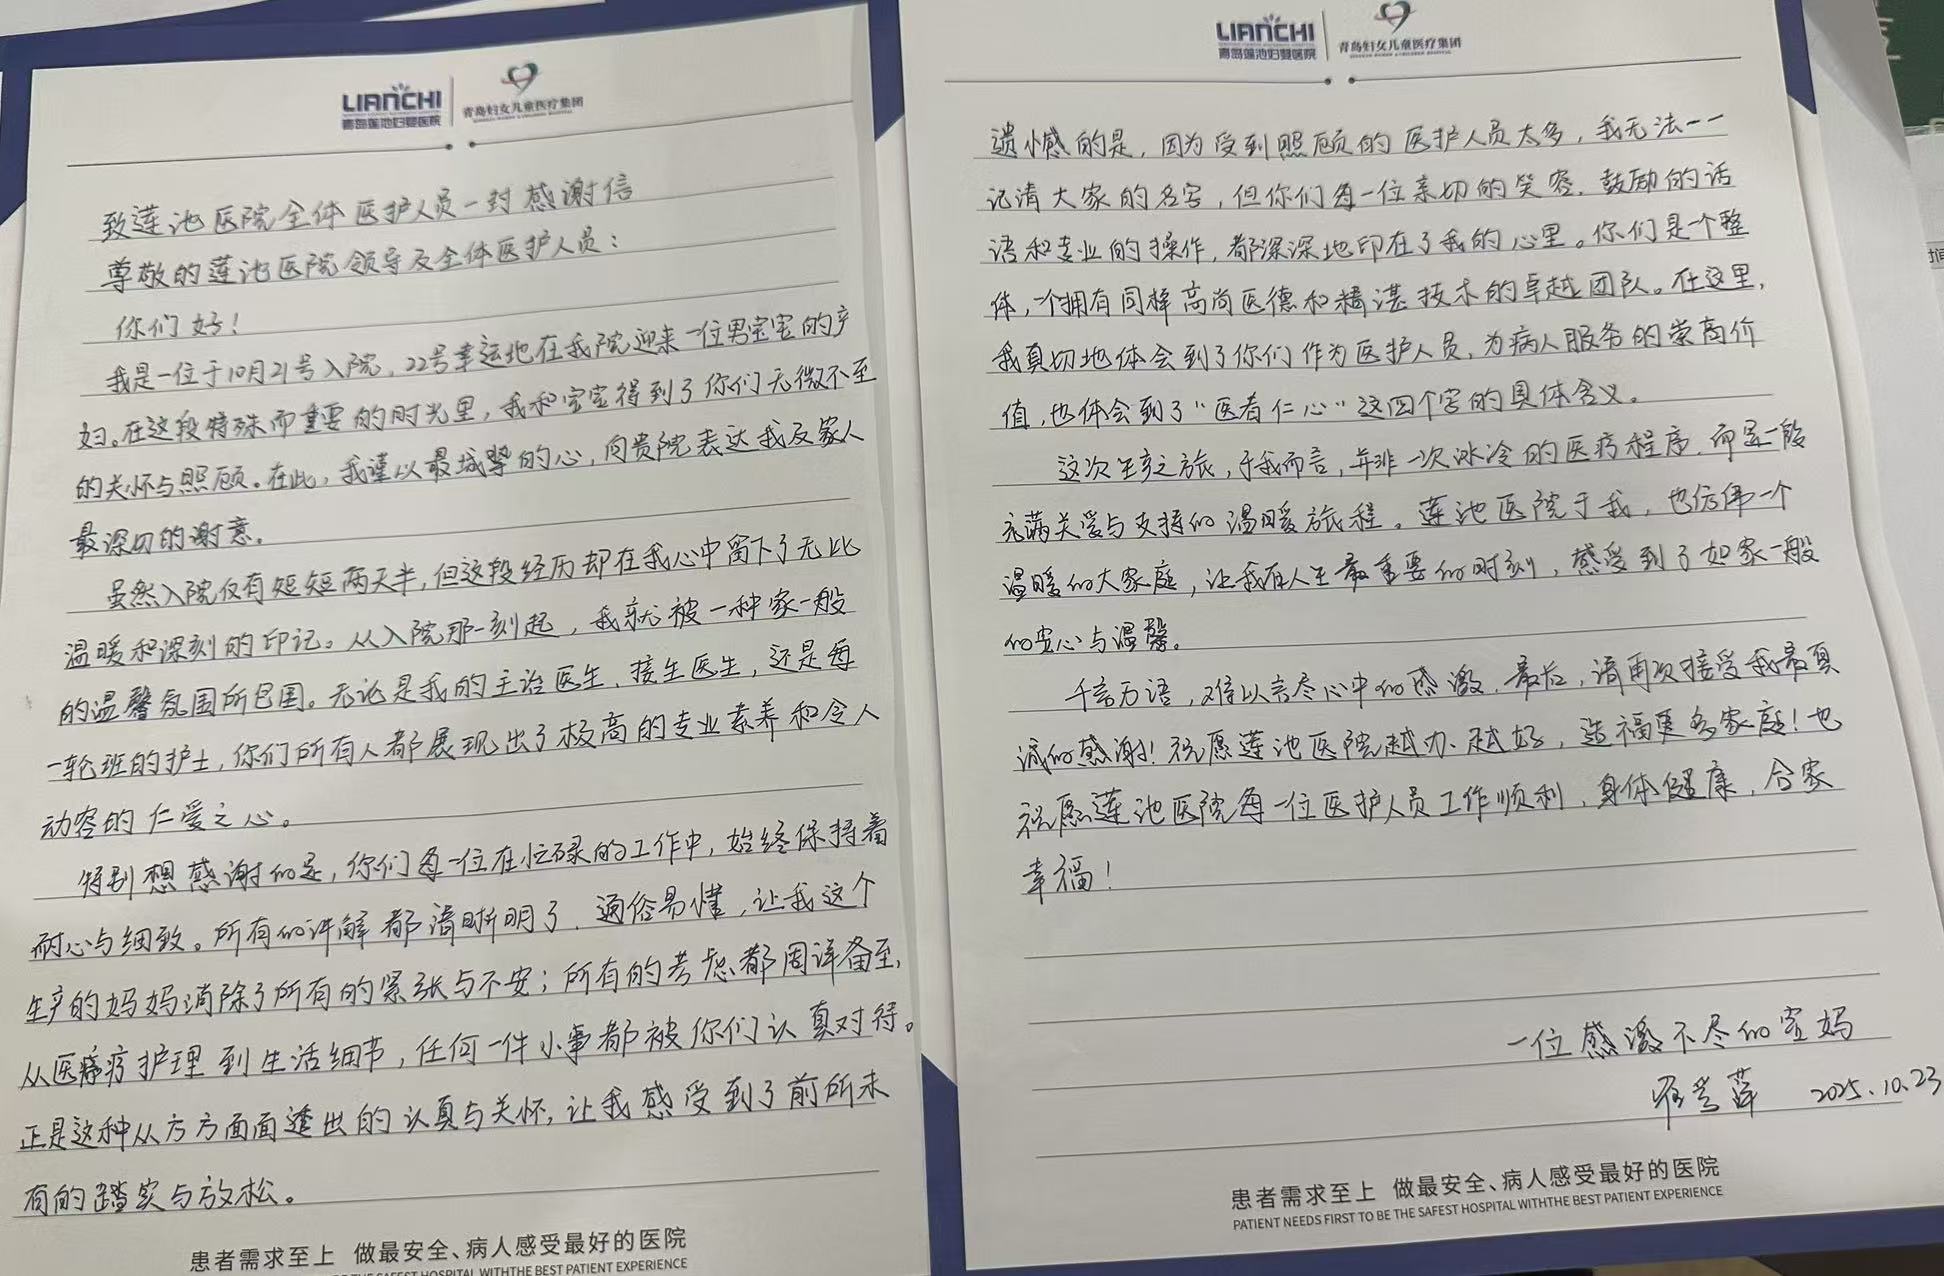 LIANCHI
青岛莲池妇婴医院
青岛妇女儿童医疗集团
致莲池医院全体医护人员一封感谢信
尊敬的莲池医院领导及全体医护人员：
你们好！
我是一位于10月21号入院，22号幸运地在我院迎来一位男宝宝的产
妇。在这段特殊而重要的时光里，我和宝宝得到了你们无微不至
的关怀与照顾。在此，我谨以最诚挚的心，向贵院表达我及家人
最深切的谢意。
虽然入院仅有短短两天半，但这段经历却在我心中留下了无比
温暖和深刻的印记。从入院那一刻起，我就被一种家一般
的温馨氛围所包围。无论是我的主治医生、接生医生，还是每
一轮班的护士，你们所有人都展现出了极高的专业素养和令人
动容的仁爱之心。
特别想感谢的是，你们每一位在忙碌的工作中，始终保持着
耐心与细致。所有的讲解都清晰明了、通俗易懂，让我这个
生产的妈妈消除了所有的紧张与不安；所有的考虑都周详备至，
从医疗护理到生活细节，任何一件小事都被你们认真对待。
正是这种从方方面面透出的认真与关怀，让我感受到了前所未
有的踏实与放松。
患者需求至上 做最安全、病人感受最好的医院
SAFEST HOSPITAL WITHTHE BEST PATIENT EXPERIENCE
LIANCHI
青岛莲池妇婴医院
青岛妇女儿童医疗集团
遗憾的是，因为受到照顾的医护人员太多，我无法一一
记清大家的名字，但你们每一位亲切的笑容、鼓励的话
语和专业的操作，都深深地印在了我的心里。你们是一个整
体，一个拥有同样高尚医德和精湛技术的卓越团队。在这里，
我真切地体会到了你们作为医护人员，为病人服务的崇高价
值，也体会到了“医者仁心”这四个字的具体含义。
这次生产之旅，于我而言，并非一次冰冷的医疗程序，而是一段
充满关爱与支持的温暖旅程。莲池医院于我，也仿佛一个
温暖的大家庭，让我在人生最重要的时刻，感受到了如家一般
的安心与温馨。
千言万语，难以言尽心中的感激，最后，请再次接受我最真
诚的感谢！祝愿莲池医院越办、越好，造福更多家庭！也
祝愿莲池医院每一位医护人员工作顺利，身体健康，合家
幸福！
一位感激不尽的宝妈
2025.10.23
患者需求至上 做最安全、病人感受最好的医院
PATIENT NEEDS FIRST TO BE THE SAFEST HOSPITAL WITHTHE BEST PATIENT EXPERIENCE